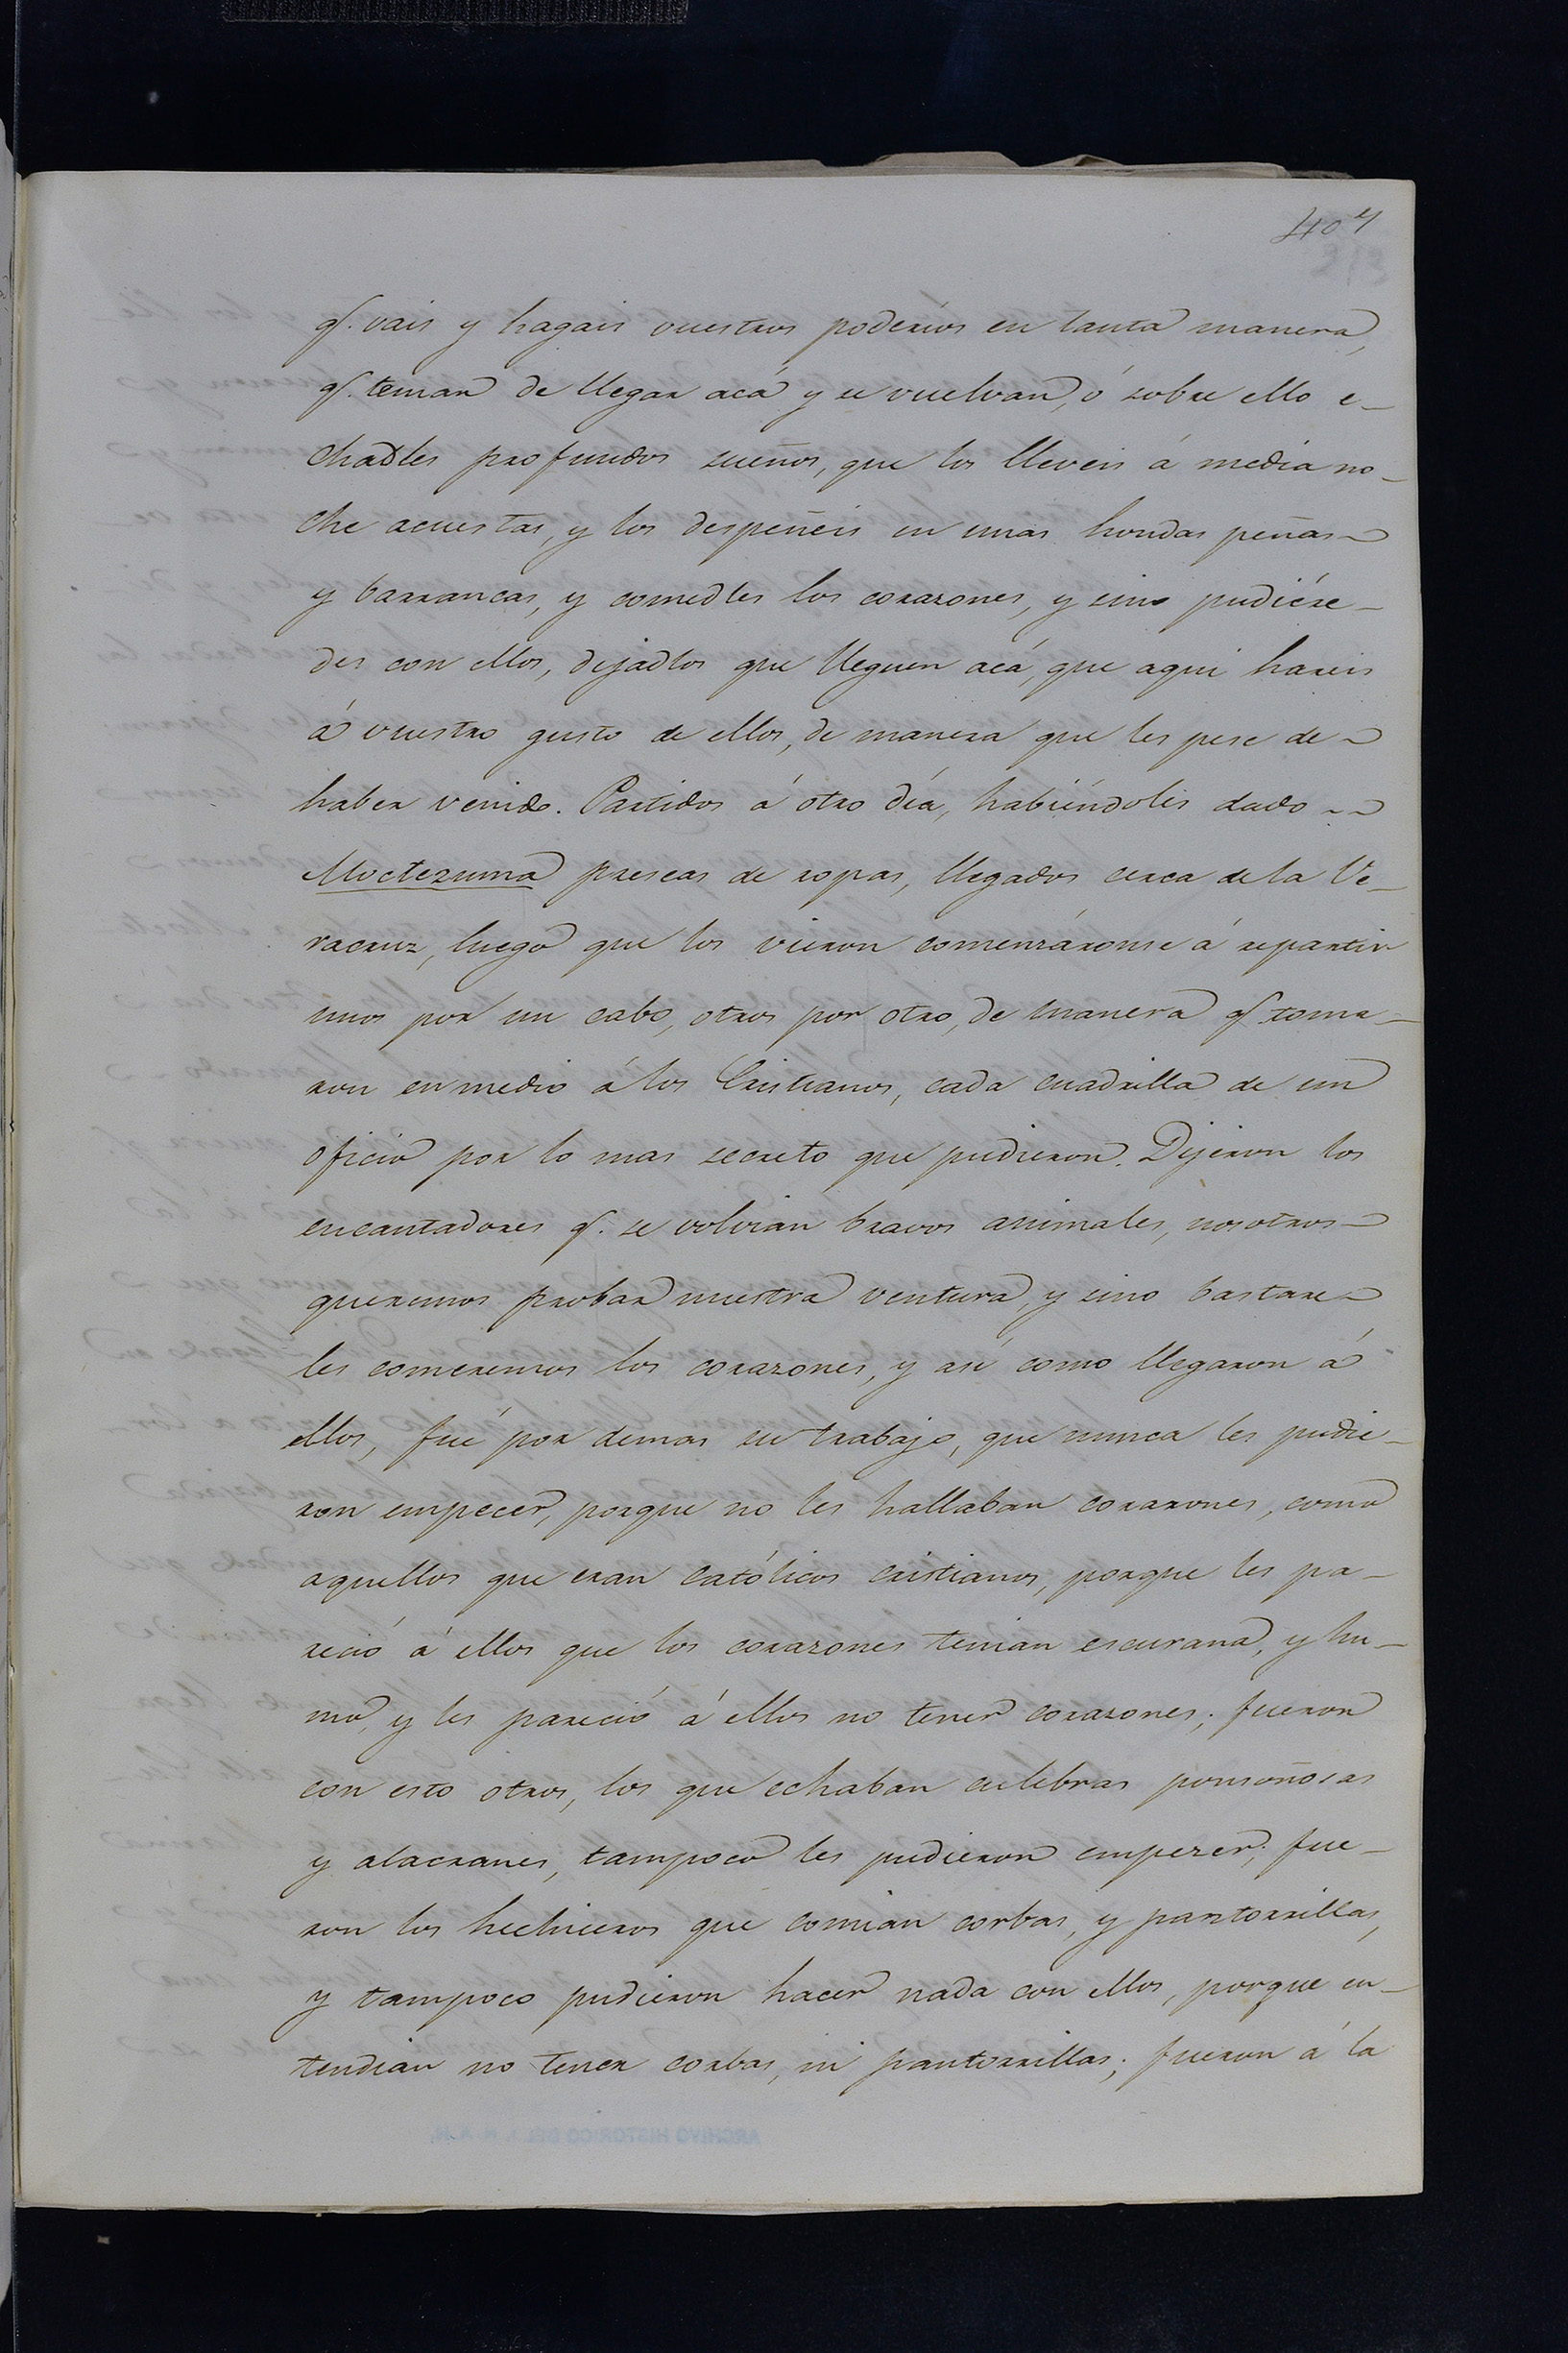 407
q.e vais y hagais vuestros poderíos en tanta manera,
q.e teman de llegar acá y se vuelvan, ó sobre ello e-
chadles profundos sueños, que los lleveis á media no-
che acuestas, y los despeñeis en unas hondas peñas
y barrancas, y comedles los corazones, y sino pudiére-
des con ellos, dejadlos que lleguen acá, que aqui hareis
á vuestro gusto de ellos, de manera que les pese de
haber venido. Partidos á otro día, habiéndoles dado
Moctezuma preseas de ropas, llegados cerca de la Ve-
racruz, luego que los vieron comenzáronse á repartir
unos por un cabo, otros por otro, de manera q.e toma-
ron en medio á los Cristianos, cada cuadrilla de un
oficio por lo mas secreto que pudieron. Dijeron los
encantadores q.e se volvian bravos animales, nosotros
queremos probar nuestra ventura, y sino bastare
les comeremos los corazones, y así como llegaron á
ellos, fué por demas su trabajo, que nunca les pudie-
ron empecer, porque no les hallaban corazones, como
aquellos que eran católicos cristianos, porque les pa-
reció á ellos que los corazones tenian escurana, y hu-
mo, y les pareció á ellos no tener corazones; fueron
con esto otros, los que echaban culebras ponsoñosas
y alacranes, tampoco les pudieron empezer; fue-
ron los hechiceros que comian corbas, y pantorrillas,
y tampoco pudieron hacer nada con ellos, porque en-
tendian no tener corbas, ni pantorrillas; fueron á la
ARCHIVO HISTORICO DEL I. N. A. H.